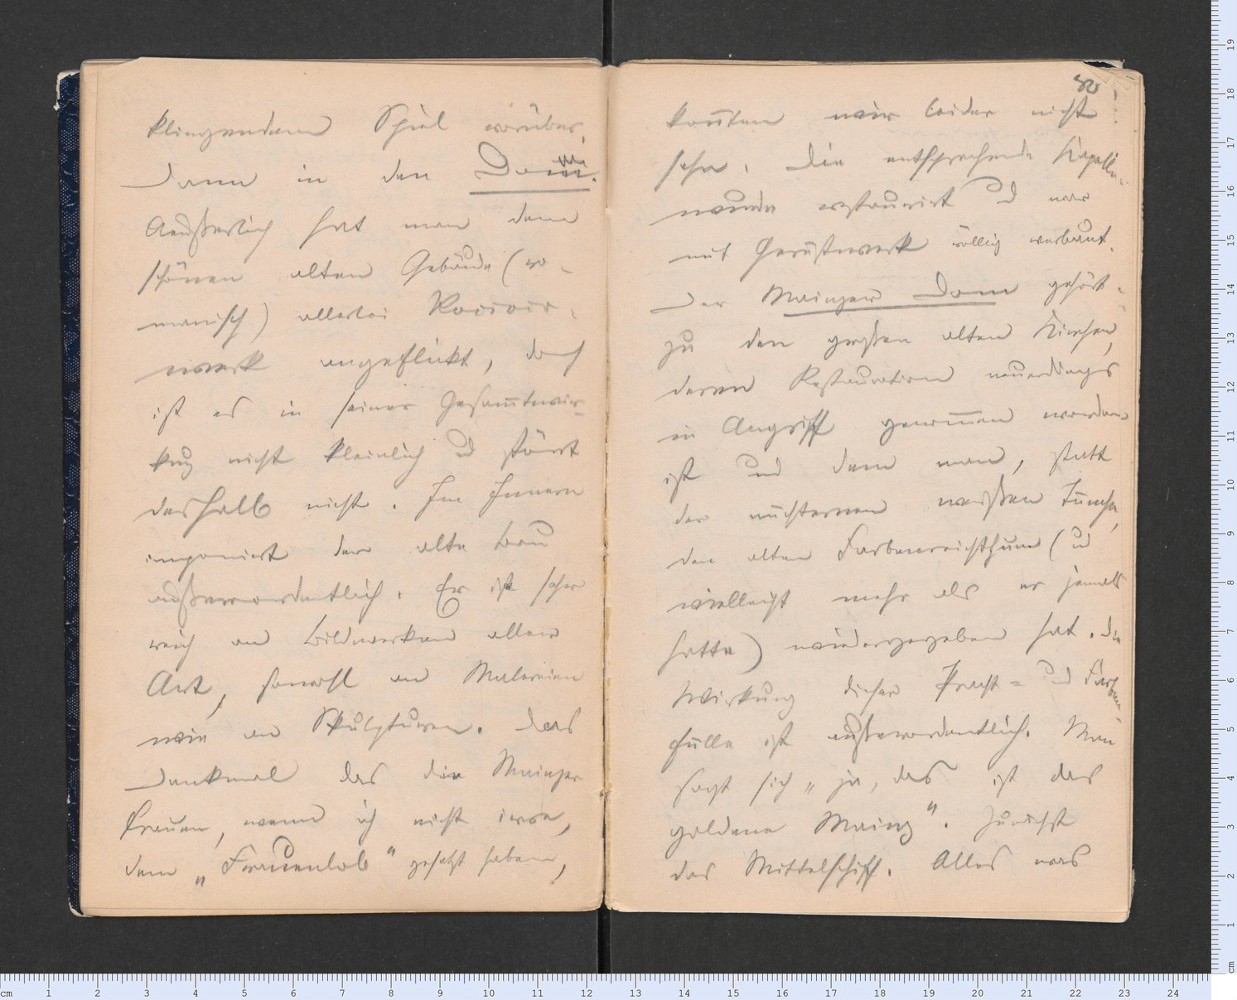 klingendem Spiel vorüber.
Dann in den Dom.
Aeußerlich hat man dem
schönen alten Gebäude (ro-
manisch) allerlei
werk angeflickt, doch
ist es in seiner Gesam̅twir-
kung nicht kleinlich u̅d stört
deshalb nicht. Im Innern
imponiert der alte Bau
außerordentlich. Er ist sehr
reich an Bildwerken aller
Art, sowohl an Malereien
wie an Skulpturen. Das
Denkmal das die Mainzer
Frauen, wenn ich nicht irre,
dem „Frauenlob“ gesetzt haben,
80
kon̅ten wir leider nicht
sehn. Die entsprechende Kapelle
wurde restauriert u̅d war
mit Gerüstwerk völlig verbaut.
Der Mainzer Dom gehört
zu den großen alten Kirchen,
deren Restauration neuerdings
in Angriff genom̅en worden
ist und dem man, statt
der nüchternen weißen Tünche,
den alten Farbenreichthum (u̅d
vielleicht mehr als er jemals
hatte) wiedergegeben hat. Die
Wirkung dieser Pracht- u̅d Farben-
fülle ist außerordentlich. Man
sagt sich „ja, das ist das
goldene Mainz“. Zunächst
das Mittelschiff. Alles was